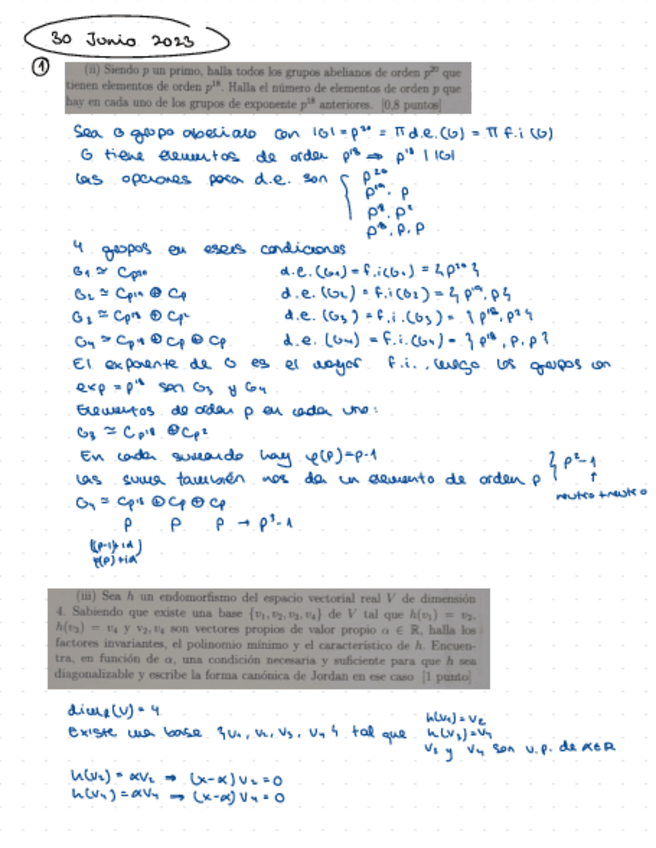 30 Junio 2023
1
(ii) Siendo p un primo, halla todos los grupos abelianos de orden p²⁰ que
tienen elementos de orden p¹⁸. Halla el número de elementos de orden p que
hay en cada uno de los grupos de exponente p¹⁸ anteriores. [0,8 puntos]
Sea G grupo abeliano con |G| = p²⁰ = π d.e.(G) = π f.i(G)
G tiene elementos de orden p¹⁸ ⇒ p¹⁸ | |G|
las opciones para d.e. son { p²⁰
p¹⁹, p
p¹⁸, p²
p¹⁸, p, p
4 grupos en esas condiciones
G₁ ≃ Cp²⁰ d.e.(G₁) = f.i(G₁) = {p²⁰}
G₂ ≃ Cp¹⁹ ⊕ Cp d.e.(G₂) = f.i(G₂) = {p¹⁹, p}
G₃ ≃ Cp¹⁸ ⊕ Cp² d.e.(G₃) = f.i.(G₃) = {p¹⁸, p²}
G₄ ≃ Cp¹⁸ ⊕ Cp ⊕ Cp d.e.(G₄) = f.i.(G₄) = {p¹⁸, p, p}
El exponente de G es el mayor f.i., luego los grupos con
exp = p¹⁸ son G₃ y G₄
Elementos de orden p en cada uno:
G₃ ≃ Cp¹⁸ ⊕ Cp²
En cada sumando hay φ(p) = p-1
las suma también nos da un elemento de orden p } p²-1
↑
neutro + neutro
G₄ ≃ Cp¹⁸ ⊕ Cp ⊕ Cp
p p p → p³-1
((p-1)+id)
φ(p)+id
(iii) Sea h un endomorfismo del espacio vectorial real V de dimensión
4. Sabiendo que existe una base {v₁, v₂, v₃, v₄} de V tal que h(v₁) = v₂,
h(v₃) = v₄ y v₂, v₄ son vectores propios de valor propio α ∈ ℝ, halla los
factores invariantes, el polinomio mínimo y el característico de h. Encuen-
tra, en función de α, una condición necesaria y suficiente para que h sea
diagonalizable y escribe la forma canónica de Jordan en ese caso [1 punto]
dimℝ(V) = 4
Existe una base {v₁, v₂, v₃, v₄} tal que h(v₁) = v₂
h(v₃) = v₄
v₂ y v₄ son v.p. de α∈ℝ
h(v₂) = αv₂ ⇒ (x-α) v₂ = 0
h(v₄) = αv₄ ⇒ (x-α) v₄ = 0